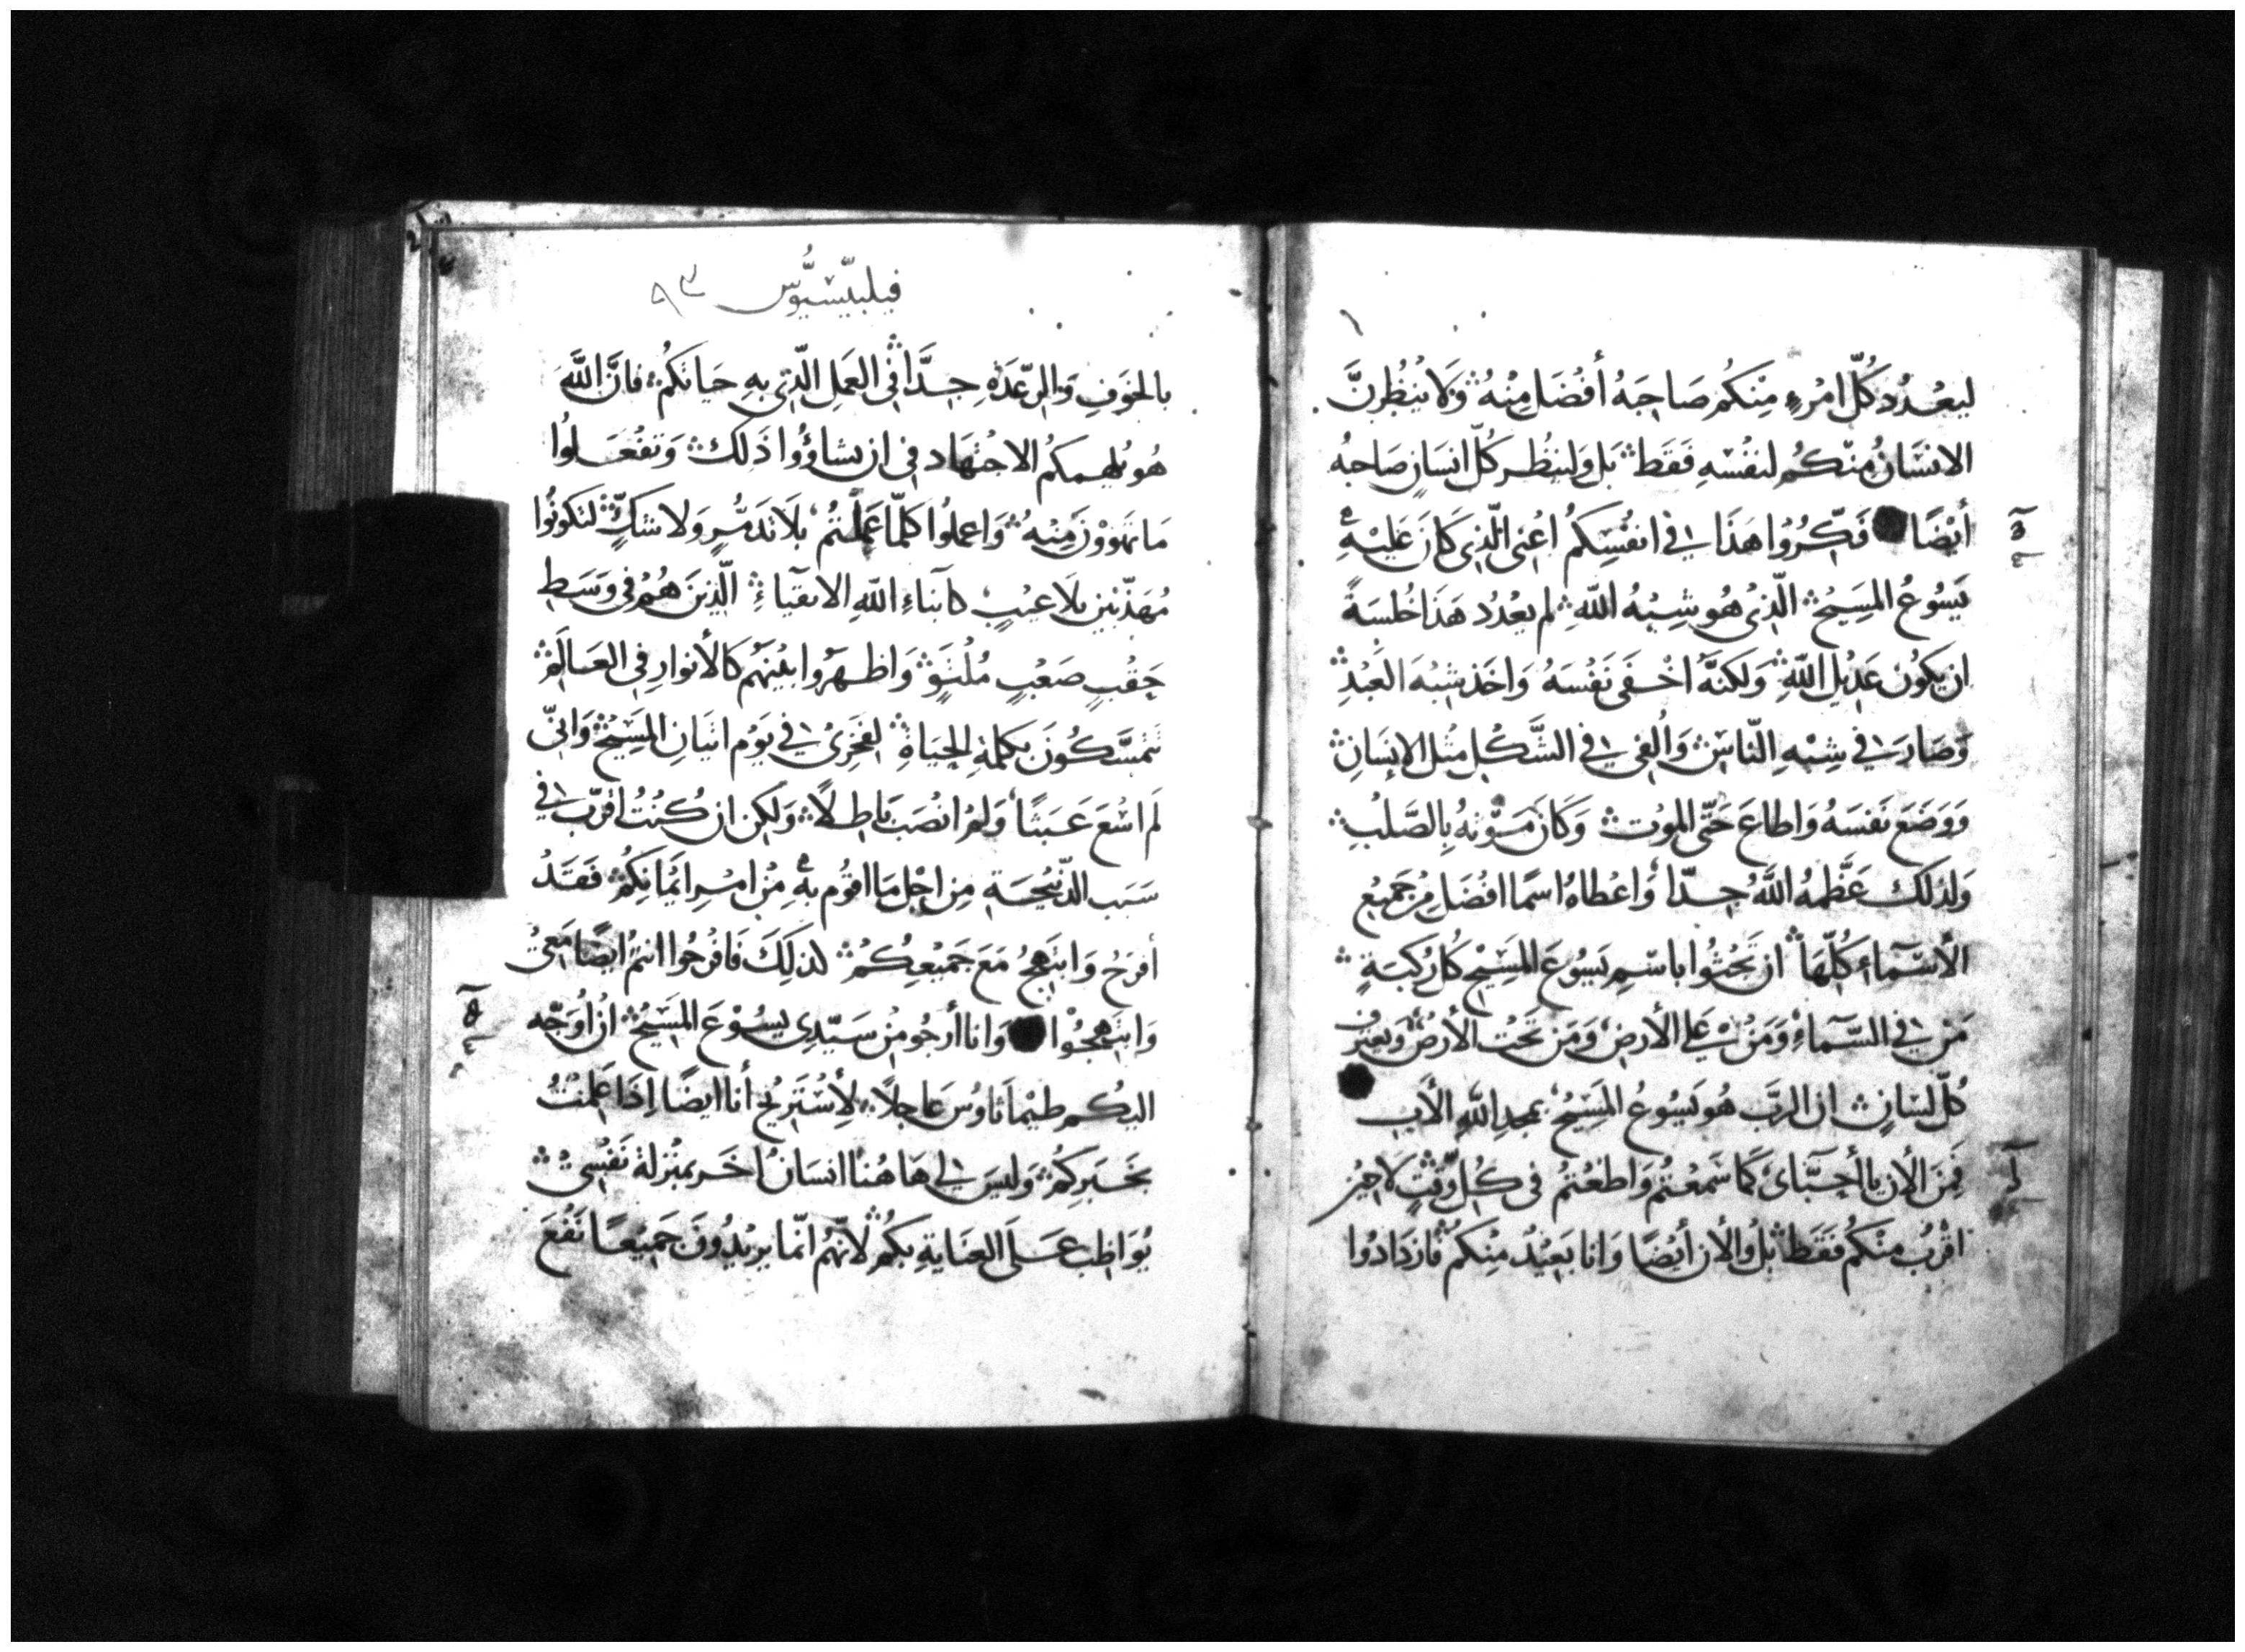 ليعْدُد كُلّ امْرءٍ مِنْكُم صَاحِبَهُ أفْضَل مِنْهُ وَلَا يَنظُرنَّ
الانسَانُ مِنْكُم لنفْسِهِ فَقَط بَل وَلينظُر كُلّ انسَانٍ صَاحِبهُ
أيْضًا فَكِّرُوا هَذَا في انفُسِكُم اعْني الَّذِي كَانَ عَليْهِ
يَسُوعُ المَسِيحُ الَّذِي هُو شِبْهُ اللَّهِ لم يعْدُد هَذَا خُلسَةً
ان يَكُون عَدِيْل اللَّهِ وَلَكنَّهُ اخْفَى نَفْسَهُ وَاخَذ شِبْهَ العَبْدِ
وَصَارَ في شِبْهِ النَّاسِ وَاُلفي في الشَّكْلِ مثْل الانسَانِ
وَوَضَعَ نَفسَهُ وَاطاعَ حَتَّى الموْت وَكَانَ مَوْتهُ بِالصَّلبِ
وَلذلكَ عَظَّمهُ اللَّهُ جدّا وَاعْطاهُ اسمًا افْضَل مِن جَميْع
الأسْمَاءِ كُلّهَا ان تَجْثُوا باسْمِ يَسُوعَ المَسِيْحِ كُل رُكبَةٍ
مَن في السَّمَاءِ وَمَنْ عَلى الأرضِ وَمَن تَحْت الأرْضِ وَيعترف
كُلّ لسَانٍ ان الربَّ هُو يَسُوعُ المَسِيْحُ بمجدِ اللَّهِ الأب
فَمِنَ الأن يا أحِبَّائ كَمَا سَمعْتُم وَاطعْتُم في كُل وَقْتٍ لَا حِيْن
اقْرُبْ مِنْكُم فَقَط بلْ وَالأن أيْضًا وَانا بَعِيْدٌ مِنْكم فازدَادُوا
فيلبيّسيوُس ٩٣
بالخوَفِ وَالرعْدَةِ جدَّا في العَمَل الَّذِي بهِ حَيَاتكُم فانَّ اللَّهَ
هُو يُلهمكُم الاجْتِهَاد في ان تشاؤُوا ذَلكَ وَتفْعَلوُا
مَا تهوَوْنَ مِنْهُ وَاعملُوا كلّما عَملْتُم بلَا تَذَمّرٍ وَلا شكٍّ لتكونُوا
مُهَذَّبين بلَا عيْبٍ كأبنَاءِ اللَّهِ الاتقيَاءِ الَّذِينَ هُمْ في وَسَطِ
حِقْبٍ صَعْبٍ مُلْتَوٍ وَاظهَرُوا بيْنهُم كَالأنوار في العَالَم
تتمسَّكُونَ بكلمةِ الحيَاةِ لفخرِيْ في يَوْم اتيَانِ المَسِيْحِ وَانيّ
لَم اسْعَ عَبَثًا وَلمْ انْصَب بَاطلًا وَلكن ان كُنْتُ اقرَّب في
سَبَب الذّبيْحَة مِن اجْل مَا اقوُم بهِ مِنْ امْرِ ايْمَانِكُم فَقَدْ
أفرَحُ وَابتَهجُ مَعَ جَميْعِكُم لذلكَ فَافرحُوا انتمُ ايضًا مَعيْ
وَابتَهجُوْا وَانا أرجُو مِنْ سَيّدِي يسُوْعَ المَسِيْحِ ان اُوَجّه
اليكُم طيْمَاتَاوُسَ عَاجلًا لأسْتَرِيْح أنا ايضًا إذا عَلمْتُ
بخَبَركُم وَليسَ لي هَا هُنا انسَانُ اخَر بمنْزلة نَفْسِيْ
يُوَاظب عَلَى العنَايةِ بكُم لأنّهُم انّما يريْدُونَ جَميْعًا نَفْعَ